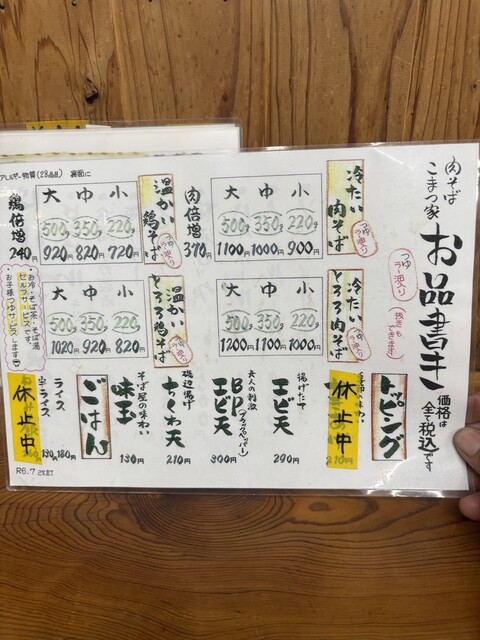 肉そば
こまつ家
お品書き
価格は
全て税込です
つゆ
ラー油入り
(抜きも
できます)
冷たい肉そば
つゆ
ラー油入り
小 中 大
220g 350g 500g
900円 1000円 1100円
肉倍増
370円
温かい鶏そば
つゆ
ラー油入り
小 中 大
220g 350g 500g
720円 820円 920円
鶏倍増
240円
アレルギー物質(28品目) 裏面に
冷たい
とろろ肉そば
つゆ
ラー油入り
小 中 大
220g 350g 500g
1000円 1100円 1200円
温かい
とろろ鶏そば
つゆ
ラー油入り
小 中 大
220g 350g 500g
820円 920円 1020円
お冷・そば茶・そば湯
セルフサービスです。
お子様つゆサービスします
トッピング
休止中
210円
揚げたて
エビ天
290円
大人の刺激
BP(ブラックペッパー)
エビ天
300円
磯辺揚げ
ちくわ天
210円
そば屋の味わい
味玉
130円
ごはん
ライス
180円
半ライス
130円
休止中
R6.7改訂